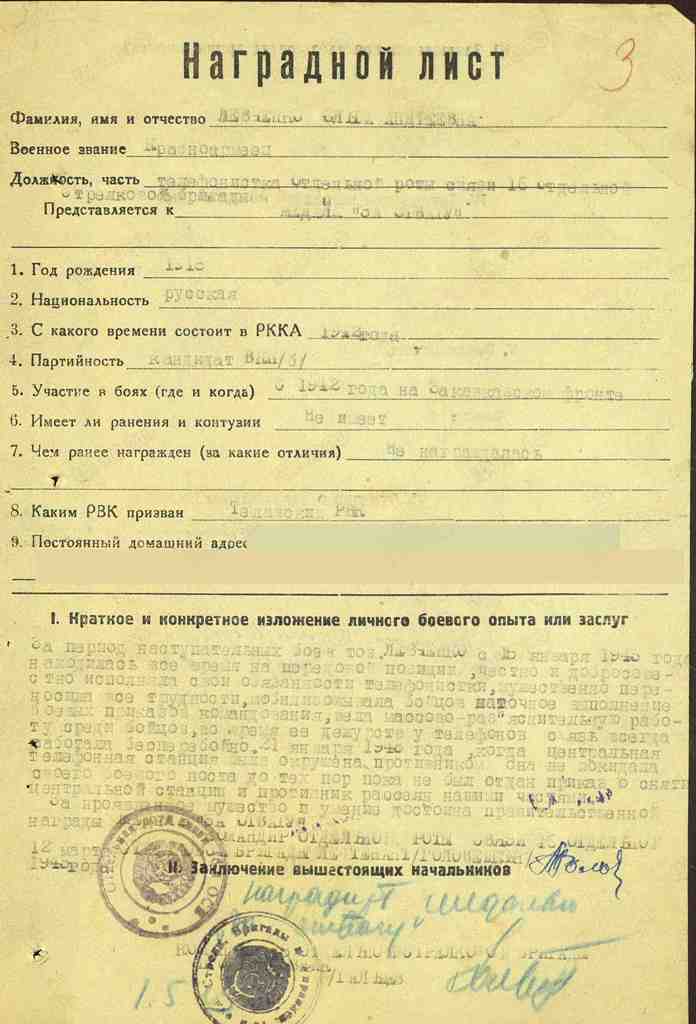 3
Наградной лист
Фамилия, имя и отчество ЛЕВЧЕНКО АНДРЕЕВНА
Военное звание Красноармеец
Должность, часть телефонистка Отдельной роты связи 16 отдельной
стрелковой бригады
Представляется к МЕДАЛИ "ЗА ОТВАГУ"
1. Год рождения
2. Национальность русская
3. С какого времени состоит в РККА 1942 года
4. Партийность кандидат ВКП/б/
5. Участие в боях (где и когда) С 1942 года на Закавказском фронте
6. Имеет ли ранения и контузии Не имеет
7. Чем ранее награжден (за какие отличия) Не награждалась
8. Каким РВК призван РВК
9. Постоянный домашний адрес
I. Краткое и конкретное изложение личного боевого опыта или заслуг
За период наступательных боев тов. ЛЕВЧЕНКО с января года
находилась все время на передовой позиции, честно и добросове-
стно исполняла свои обязанности телефонистки, мужественно пере-
носила все трудности, мобилизовывала бойцов на точное выполнение
боевых приказов командования, вела массово-раз"яснительную рабо-
ту среди бойцов, во время ее дежурств у телефонов связь всегда
работала бесперебойно. 21 января года когда центральная
телефонная станция была окружена противником она не покидала
своего боевого поста до тех пор пока не был отдан приказ о снятии
центральной станции и противник рассеян нашими частями.
За проявленное мужество и умение достойна правительственной
награды ОТВАГУ"
КОМАНДИР ОТДЕЛЬНОЙ РОТЫ СВЯЗИ ОТДЕЛЬНОЙ
12 март БРИГАДЫ
года
II. Заключение вышестоящих начальников
Наградить медалью
"За отвагу"
СТРЕЛКОВОЙ БРИГАДЫ
1.5